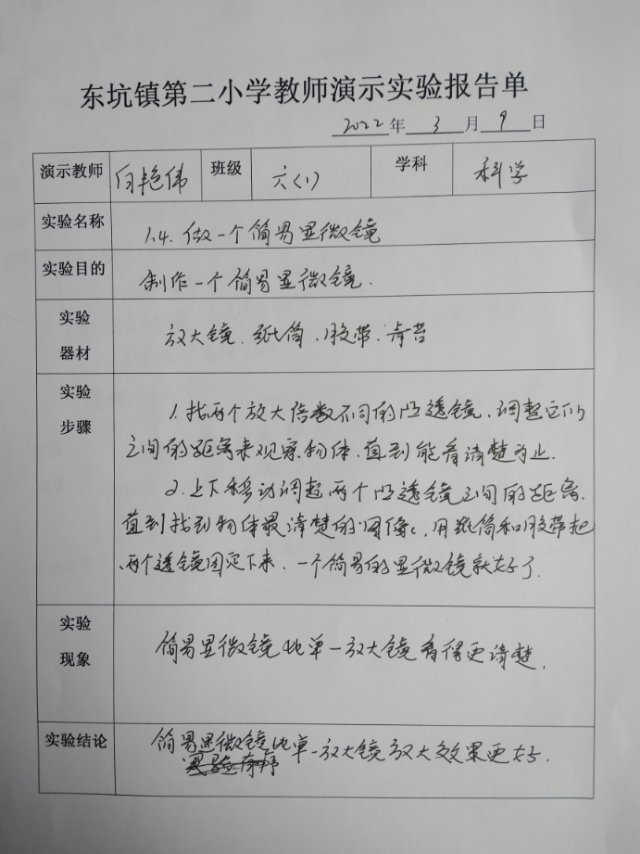 东坑镇第二小学教师演示实验报告单
2022年 3 月 9 日
演示教师 艳伟 班级 六(1) 学科 科学
实验名称 1.4. 做一个简易显微镜
实验目的 制作一个简易显微镜.
实验
器材
放大镜、纸筒、胶带、青苔
实验
步骤
1. 找两个放大倍数不同的凸透镜,调整它们
之间的距离来观察物体,直到能看清楚为止.
2. 上下移动调整两个凸透镜之间的距离,
直到找到物体最清楚的图像,用纸筒和胶带把
两个透镜固定下来.一个简易的显微镜就好了.
实验
现象
简易显微镜比单一放大镜看得更清楚.
实验结论 简易显微镜比单一放大镜放大效果更好.